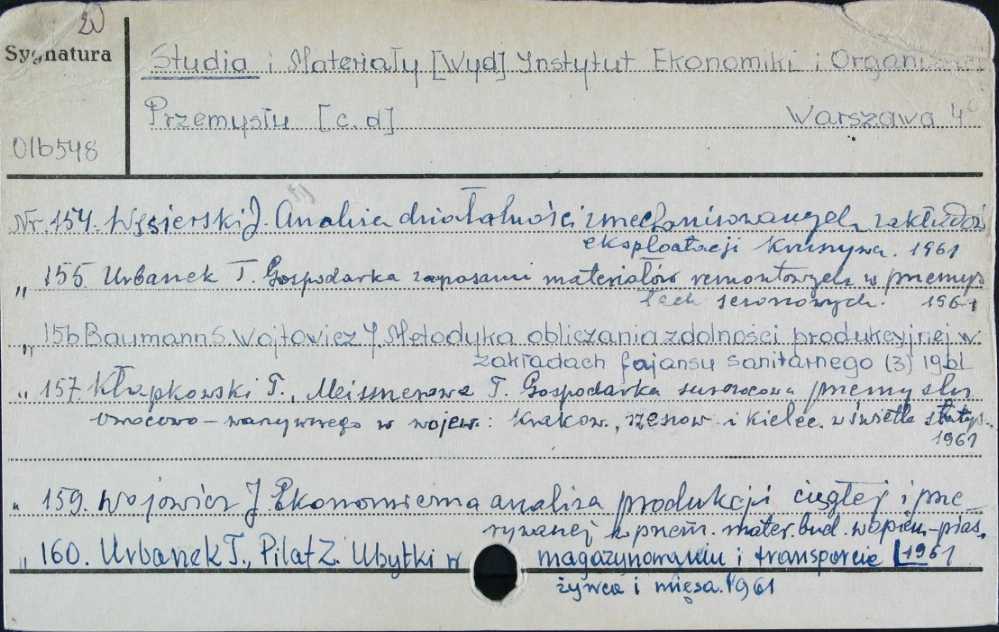 20
Sygnatura
Studia i Materiały [Wyd] Instytut Ekonomiki i Organizacji
Przemysłu [c.d] Warszawa 4°
01b548
Nr. 154. J. Analiza działalności zmechanizowanych zakładów
eksploatacji kruszywa. 1961
„ 155. Urbanek T. Gospodarka zapasami materiałów remontowych w przemys
łach sezonowych. 1961
„ 156 Baumann S. Wojtowicz J. Metodyka obliczania zdolności produkcyjnej w
zakładach fajansu sanitarnego (3) 1961
„ 157. Kłapkowski T., Meissnerowa T. Gospodarka surowcowa przemysłu
owocowo - warzywnego w wojew.: krakow., rzeszow. i kielec. w świetle statys..
1961
„ 159. Wojowicz J. Ekonomiczna analiza produkcji ciągłej i prze
rywanej w przem. mater. bud. wapien.-pias.
1961
„ 160. Urbanek T., Pilat Z. Ubytki w magazynowaniu i transporcie
żywca i mięsa. 1961